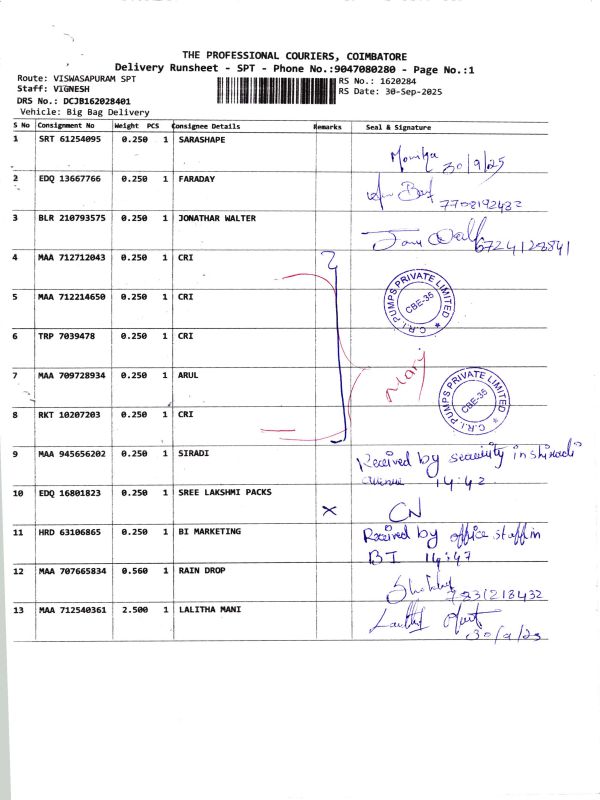 THE PROFESSIONAL COURIERS, COIMBATORE
Delivery Runsheet - SPT - Phone No.:9047080280 - Page No.:1
Route: VISWASAPURAM SPT
RS No.: 1620284
Staff: VIGNESH
RS Date: 30-Sep-2025
DRS No.: DCJB162028401
Vehicle: Big Bag Delivery
S No Consignment No Weight PCS Consignee Details Remarks Seal & Signature
1 SRT 61254095 0.250 1 SARASHAPE
30/9/25
2 EDQ 13667766 0.250 1 FARADAY
7702192432
3 BLR 210793575 0.250 1 JONATHAR WALTER
6724128841
4 MAA 712712043 0.250 1 CRI
5 MAA 712214650 0.250 1 CRI
C.R.I. PUMPS PRIVATE LIMITED
CBE-35
6 TRP 7039478 0.250 1 CRI
7 MAA 709728934 0.250 1 ARUL
Mary
C.R.I. PUMPS PRIVATE LIMITED
CBE-35
8 RKT 10207203 0.250 1 CRI
9 MAA 945656202 0.250 1 SIRADI
Received by security in shiradi
14:42
10 EDQ 16801823 0.250 1 SREE LAKSHMI PACKS
X CN
11 HRD 63106865 0.250 1 BI MARKETING
Received by office staff in
BI 14:47
12 MAA 707665834 0.560 1 RAIN DROP
13 MAA 712540361 2.500 1 LALITHA MANI
30/9/25